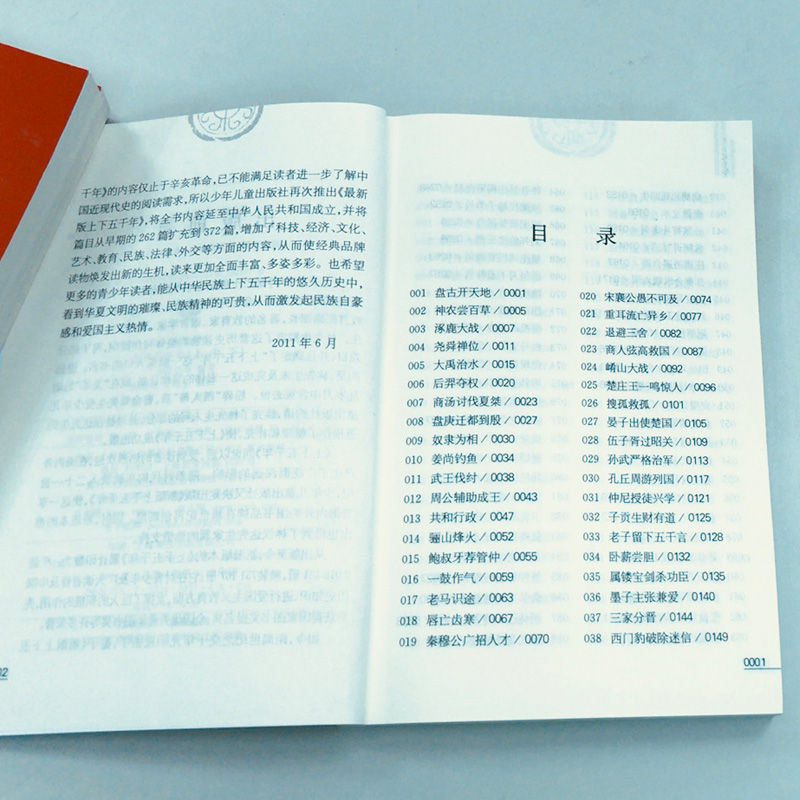 千年》的内容仅止于辛亥革命,已不能满足读者进一步了解中
国近现代史的阅读需求,所以少年儿童出版社再次推出《最新
版上下五千年》,将全书内容延至中华人民共和国成立,并将
篇目从早期的262篇扩充到372篇,增加了科技、经济、文化、
艺术、教育、民族、法律、外交等方面的内容,从而使经典品牌
读物焕发出新的生机,读来更加全面丰富、多姿多彩。也希望
更多的青少年读者,能从中华民族上下五千年的悠久历史中,
看到华夏文明的璀璨、民族精神的可贵,从而激发起民族自豪
感和爱国主义热情。
2011年6月
02
目 录
001 盘古开天地/0001
002 神农尝百草/0005
003 涿鹿大战/0007
004 尧舜禅位/0011
005 大禹治水/0015
006 后羿夺权/0020
007 商汤讨伐夏桀/0023
008 盘庚迁都到殷/0027
009 奴隶为相/0030
010 姜尚钓鱼/0034
011 武王伐纣/0038
012 周公辅助成王/0043
013 共和行政/0047
014 骊山烽火/0052
015 鲍叔牙荐管仲/0055
016 一鼓作气/0059
017 老马识途/0063
018 唇亡齿寒/0067
019 秦穆公广招人才/0070
020 宋襄公愚不可及/0074
021 重耳流亡异乡/0077
022 退避三舍/0082
023 商人弦高救国/0087
024 崤山大战/0092
025 楚庄王一鸣惊人/0096
026 搜孤救孤/0101
027 晏子出使楚国/0105
028 伍子胥过昭关/0109
029 孙武严格治军/0113
030 孔丘周游列国/0117
031 仲尼授徒兴学/0121
032 子贡生财有道/0125
033 老子留下五千言/0128
034 卧薪尝胆/0132
035 属镂宝剑杀功臣/0135
036 墨子主张兼爱/0140
037 三家分晋/0144
038 西门豹破除迷信/0149
0001